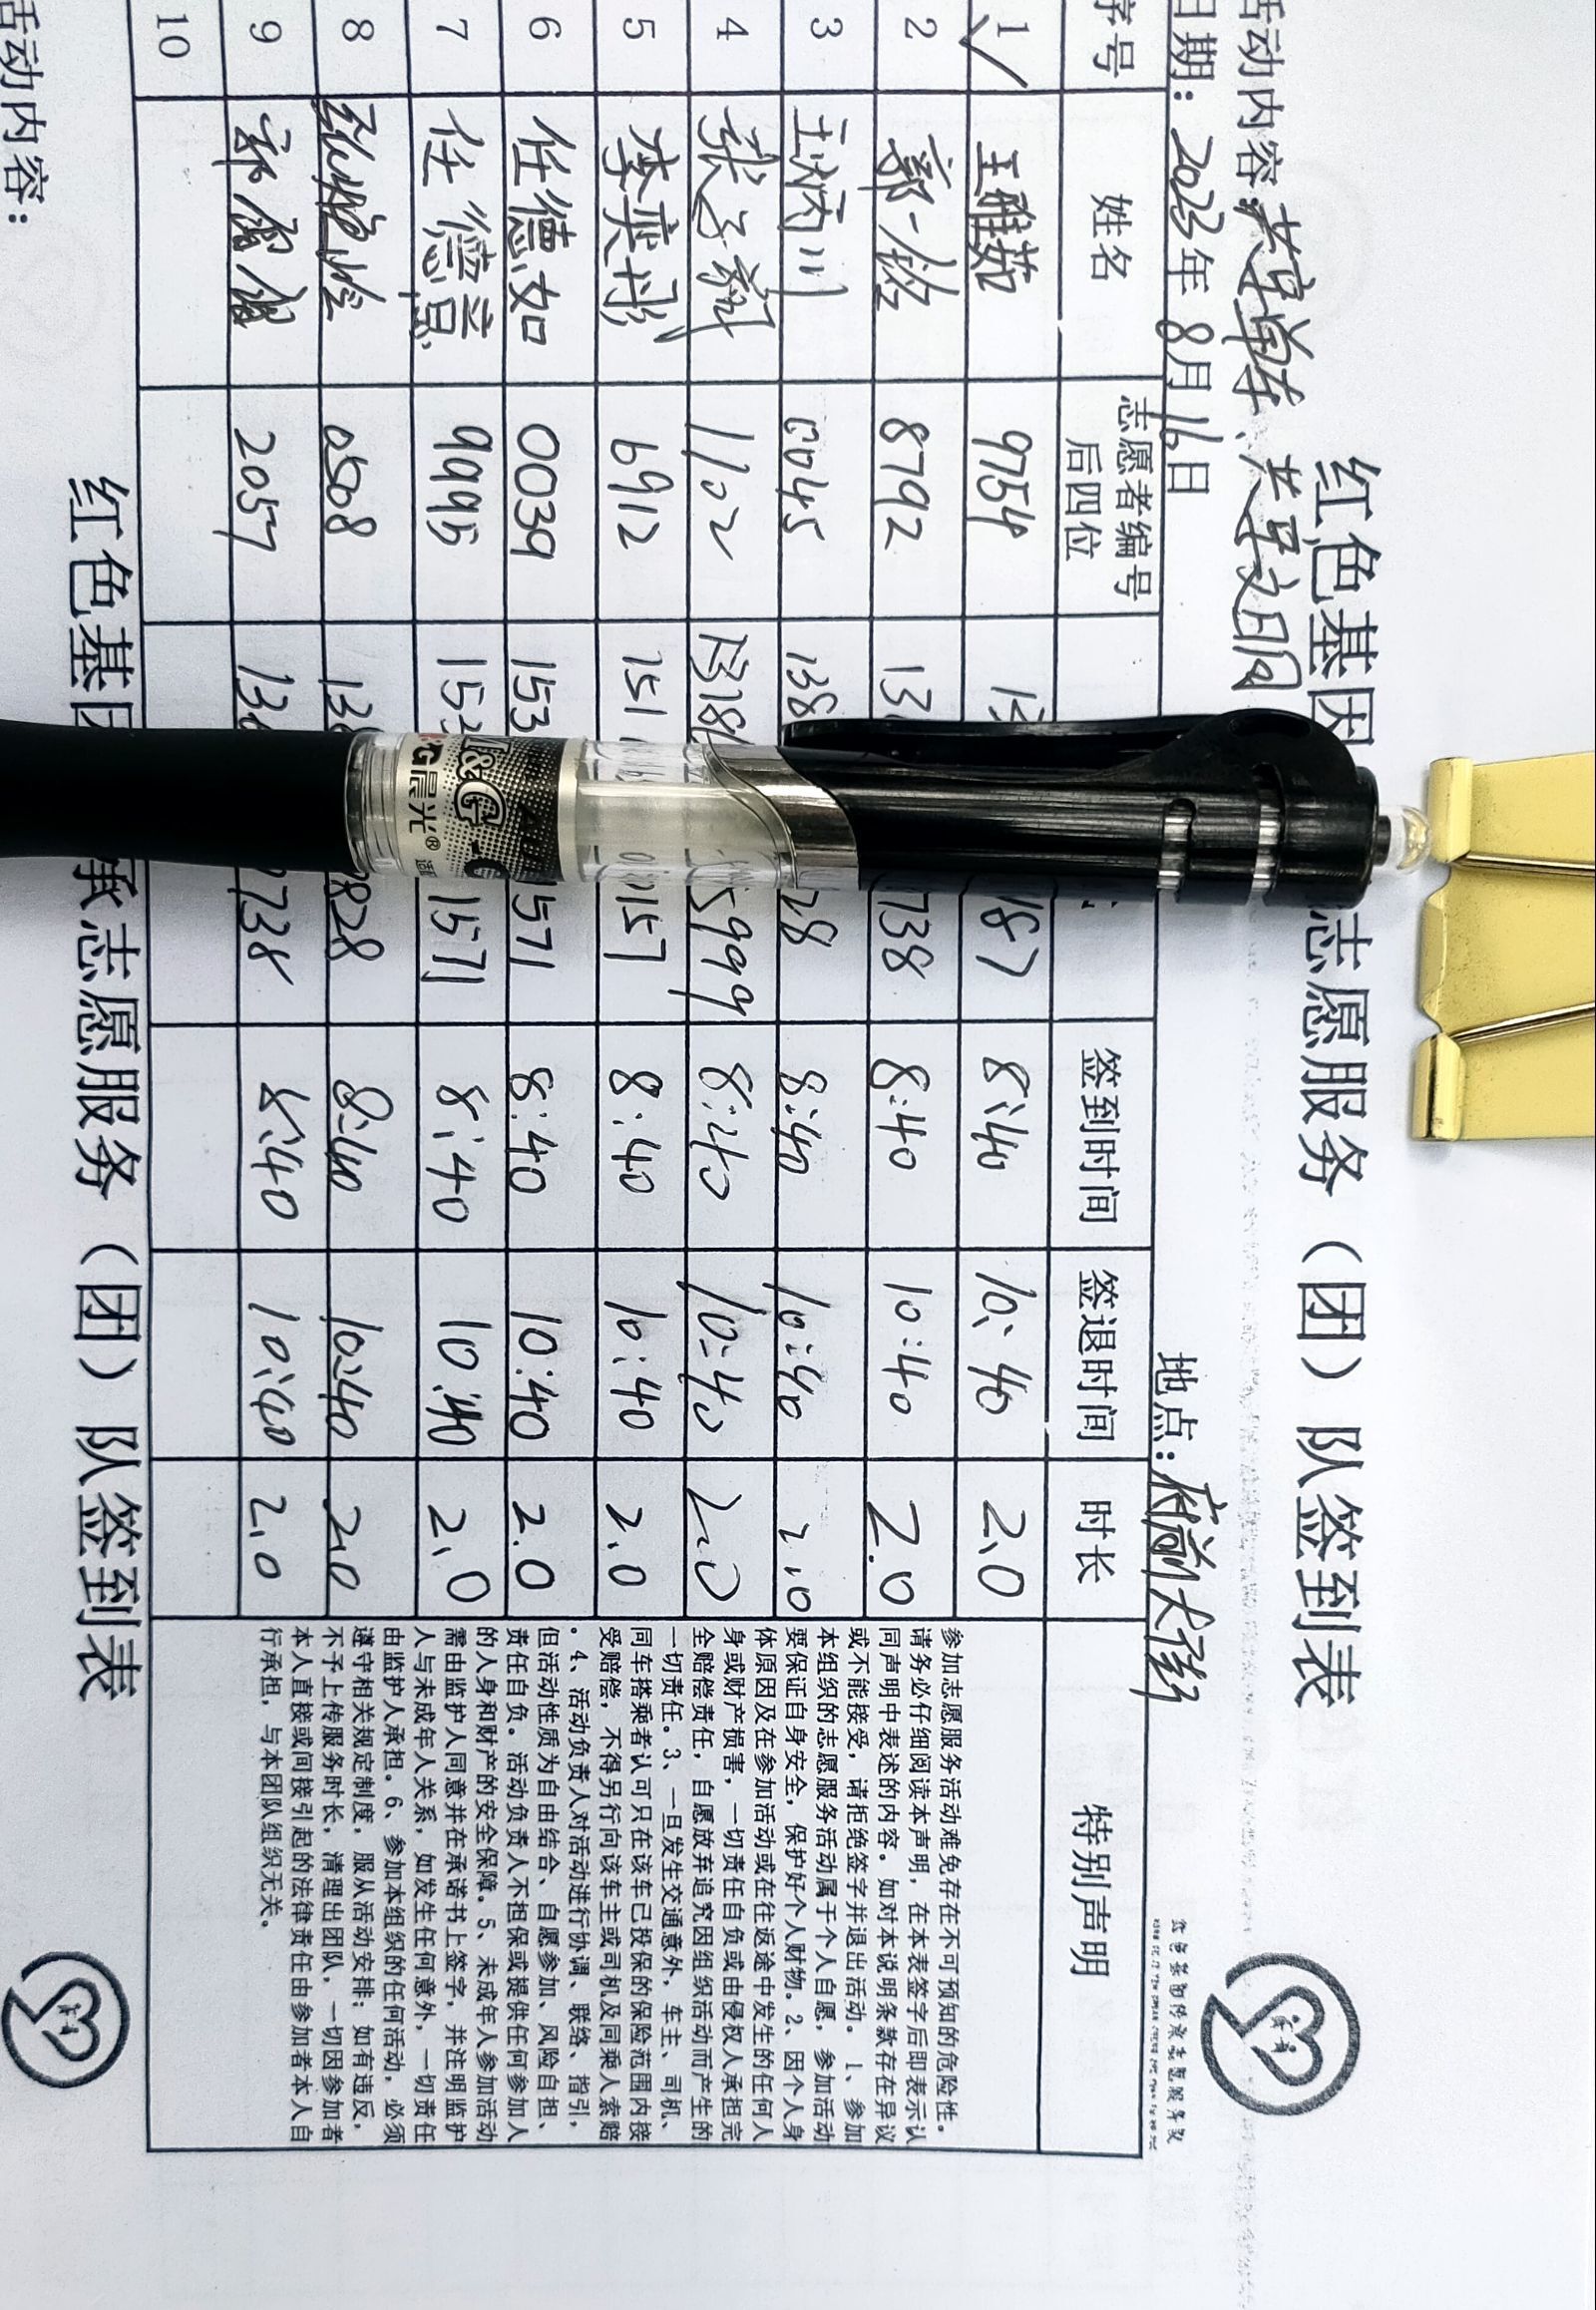 红色基因 志愿服务（团）队签到表
活动内容：共享单车、共享文明
日期：2023年8月16日 地点：府前大街
序号 姓名 志愿者编号后四位 签到时间 签退时间 时长 特别声明
1 王雅茹 9754 187 8:40 10:40 2.0
2 郭一铭 8792 13 738 8:40 10:40 2.0
3 王炳川 0045 138 28 8:40 10:40 2.0
4 张子 1102 5999 8:40 10:40 2.0
5 李奕彤 6912 151 0157 8:40 10:40 2.0
6 任德如 0039 153 1571 8:40 10:40 2.0
7 任德意 9995 15 1571 8:40 10:40 2.0
8 0508 13 9828 8:40 10:40 2.0
9 2057 13 738 8:40 10:40 2.0
10
参加志愿服务活动难免存在不可预知的危险性。
请务必仔细阅读本声明，在本表签字后即表示认
同声明中表述的内容。如对本说明条款存在异议
或不能接受，请拒绝签字并退出活动。1、参加
本组织的志愿服务活动属于个人自愿，参加活动
要保证自身安全，保护好个人财物。2、因个人身
体原因及在参加活动或在往返途中发生的任何人
身或财产损害，一切责任自负或由侵权人承担完
全赔偿责任，自愿放弃追究因组织活动而产生的
一切责任。3、一旦发生交通意外，车主、司机、
同车搭乘者认可只在该车已投保的保险范围内接
受赔偿，不得另行向该车主或司机及同乘人索赔
。4、活动负责人对活动进行协调、联络、指引，
但活动性质为自由结合、自愿参加、风险自担、
责任自负。活动负责人不担保或提供任何参加人
的人身和财产的安全保障。5、未成年人参加活动
需由监护人同意并在承诺书上签字，并注明监护
人与未成年人关系，如发生任何意外，一切责任
由监护人承担。6、参加本组织的任何活动，必须
遵守相关规定制度，服从活动安排；如有违反，
不予上传服务时长，清理出团队，一切因参加者
本人直接或间接引起的法律责任由参加者本人自
行承担，与本团队组织无关。
M&G 晨光®
红色基因 承志愿服务（团）队签到表
活动内容：